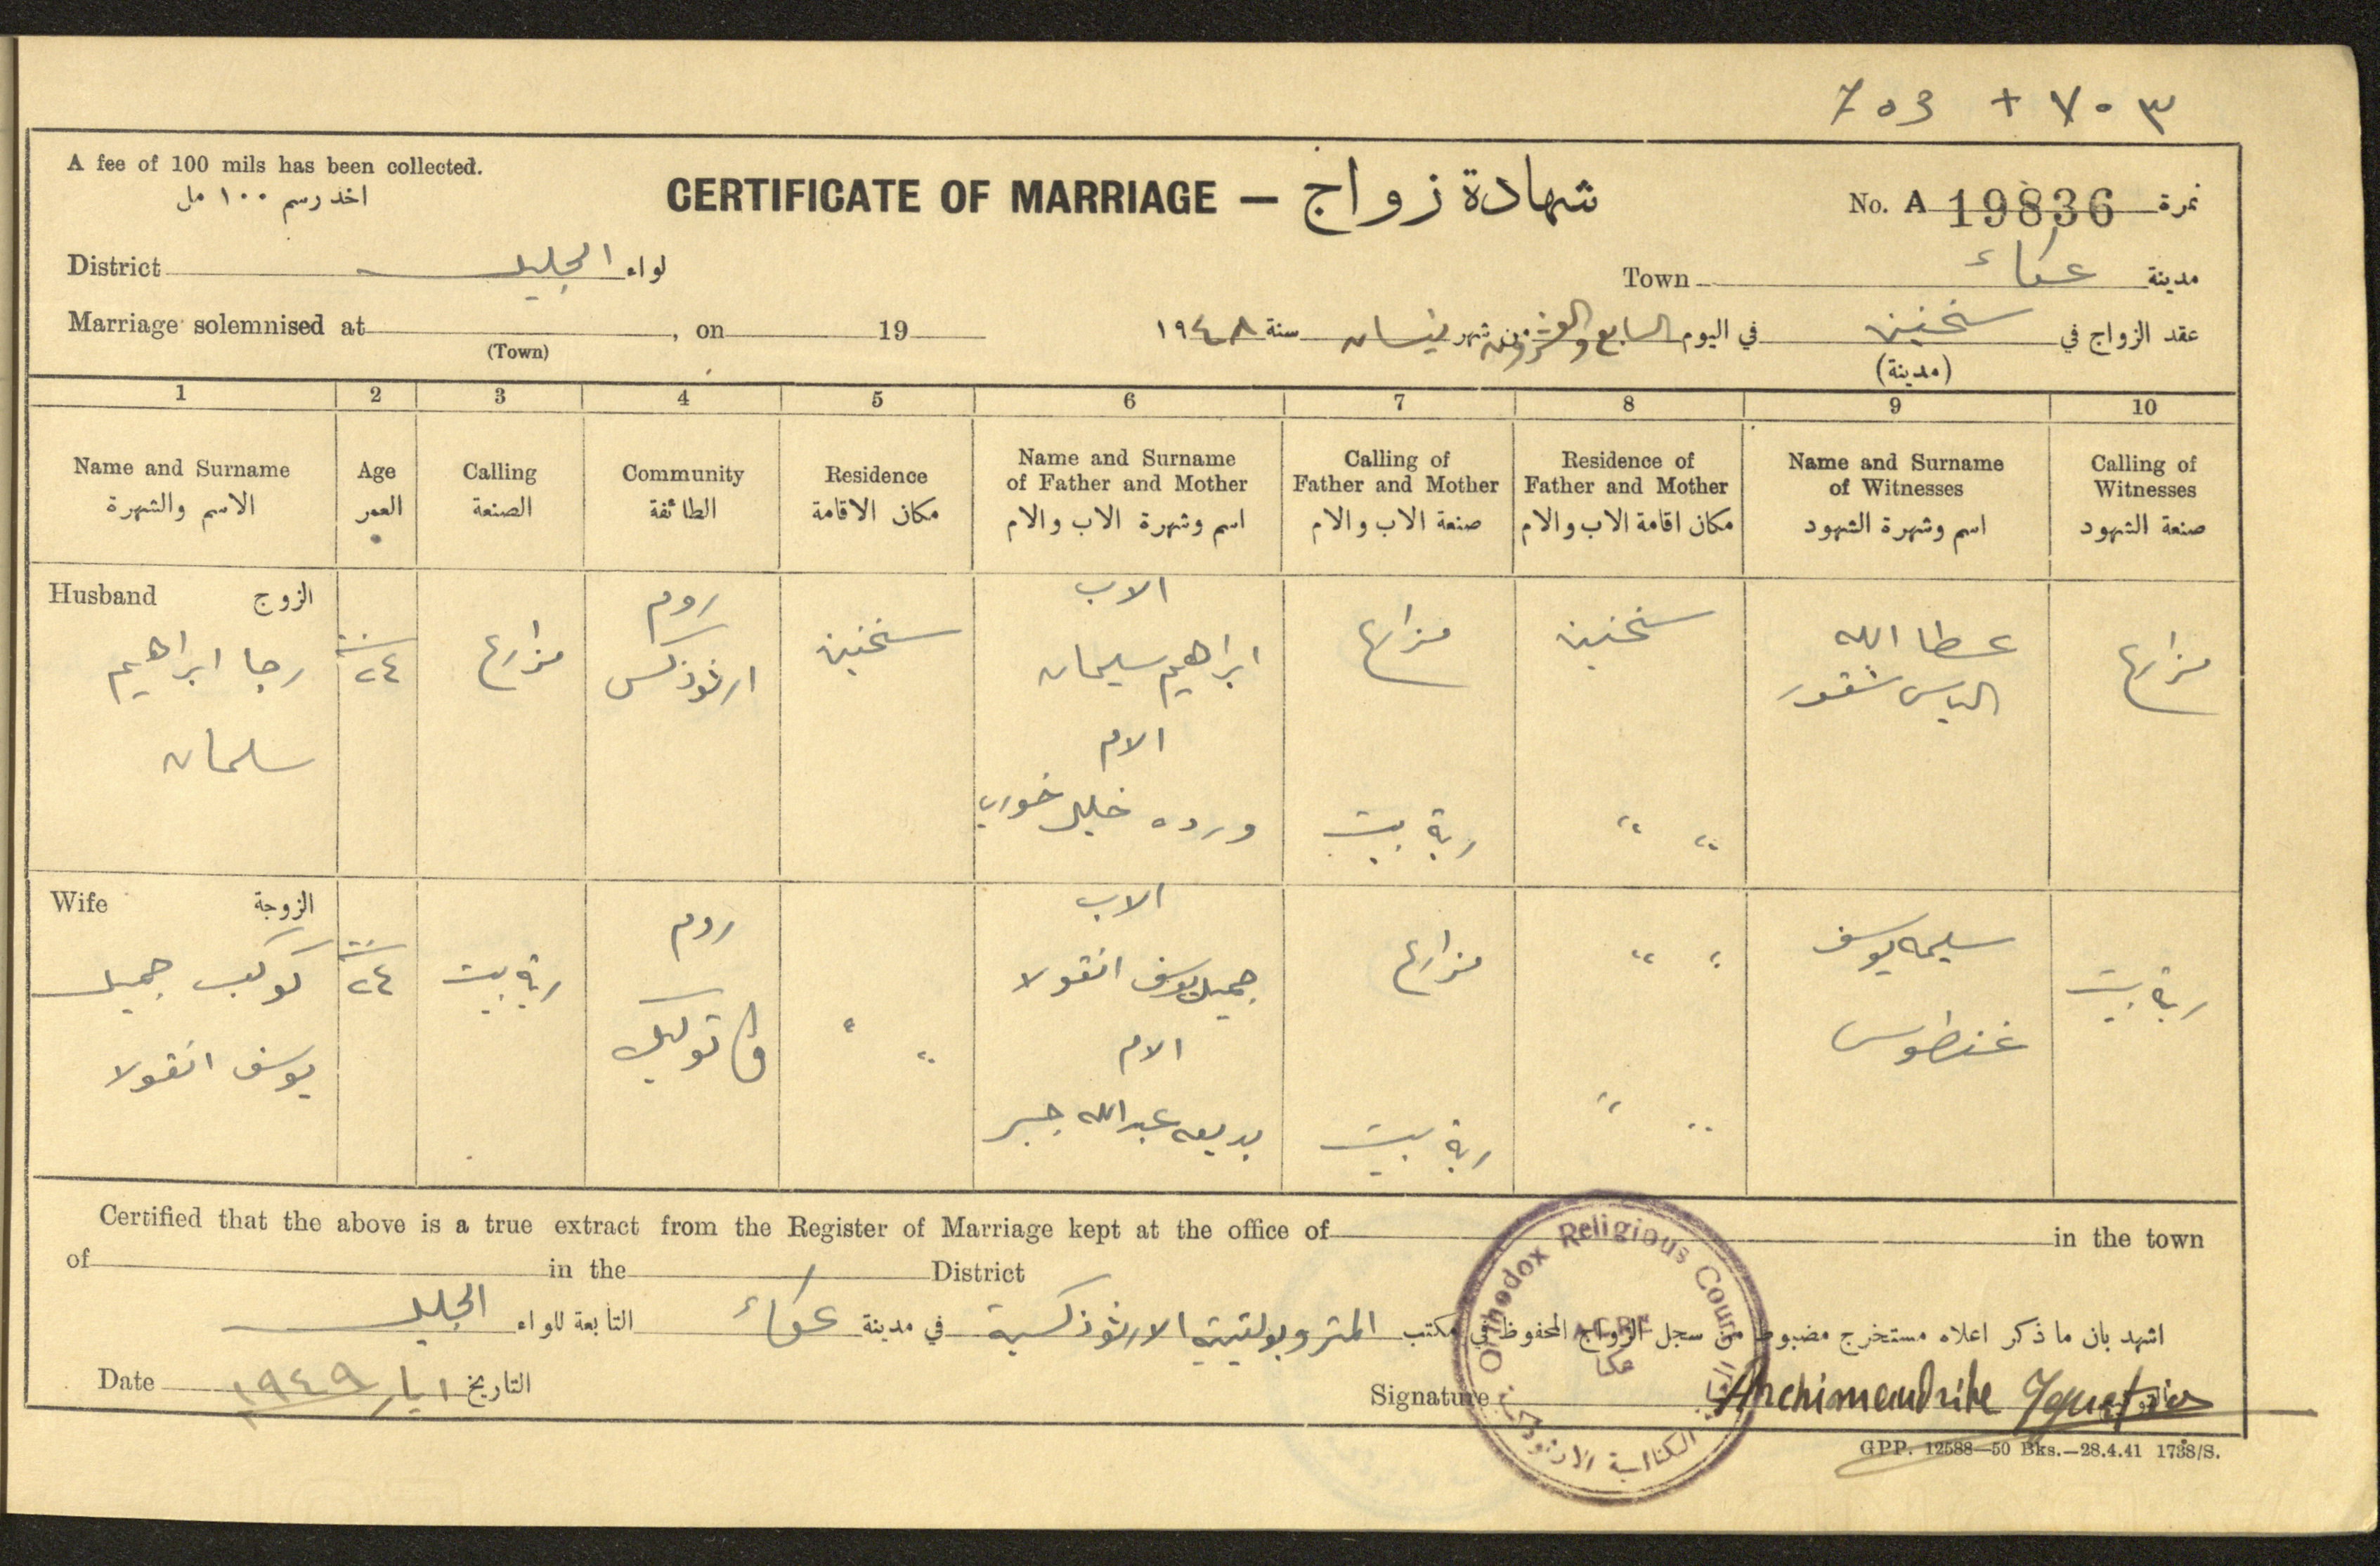 703 + ٧٠٣
A fee of 100 mils has been collected.
اخذ رسم ١٠٠ مل
CERTIFICATE OF MARRIAGE — شهادة زواج
No. A 19836 نمرة
District الجليل لواء
Town عكاء مدينة
Marriage solemnised at , on 19
(Town)
عقد الزواج في سخنين في اليوم السابع والعشرون شهر نيسان سنة ١٩٤٨
(مدينة)
1 2 3 4 5 6 7 8 9 10
Name and Surname
الاسم والشهرة
Age
العمر
Calling
الصنعة
Community
الطائفة
Residence
مكان الاقامة
Name and Surname
of Father and Mother
اسم وشهرة الاب والام
Calling of
Father and Mother
صنعة الاب والام
Residence of
Father and Mother
مكان اقامة الاب والام
Name and Surname
of Witnesses
اسم وشهرة الشهود
Calling of
Witnesses
صنعة الشهود
Husband الزوج
رجا ابراهيم
سلمان
سنة
٢٤
مزارع
روم
ارثوذكس
سخنين
الاب
ابراهيم سليمان
الام
ورده خليل خوري
مزارع
ربة بيت
سخنين
" "
عطا الله
الياس شقور
مزارع
Wife الزوجة
كوكب جميل
يوسف انقولا
سنة
٢٤
ربة بيت
روم
كاثوليك
" "
الاب
جميل يوسف انقولا
الام
بديعه عبدالله جبر
مزارع
ربة بيت
" "
" "
سليمه يوسف
غنطوس
ربة بيت
Certified that the above is a true extract from the Register of Marriage kept at the office of in the town
of in the District
اشهد بان ما ذكر اعلاه مستخرج مضبوط من سجل الزواج المحفوظ في مكتب المتروبوليتية الارثوذكسية في مدينة عكاء التابعة للواء الجليل
Date ١ ايار ١٩٤٩ التاريخ
Signature Archimandrite Ignatios
Orthodox Religious Court
ACRE
عكا
الارثوذكسية
GPP. 12588—50 Bks.—28.4.41 1738/S.